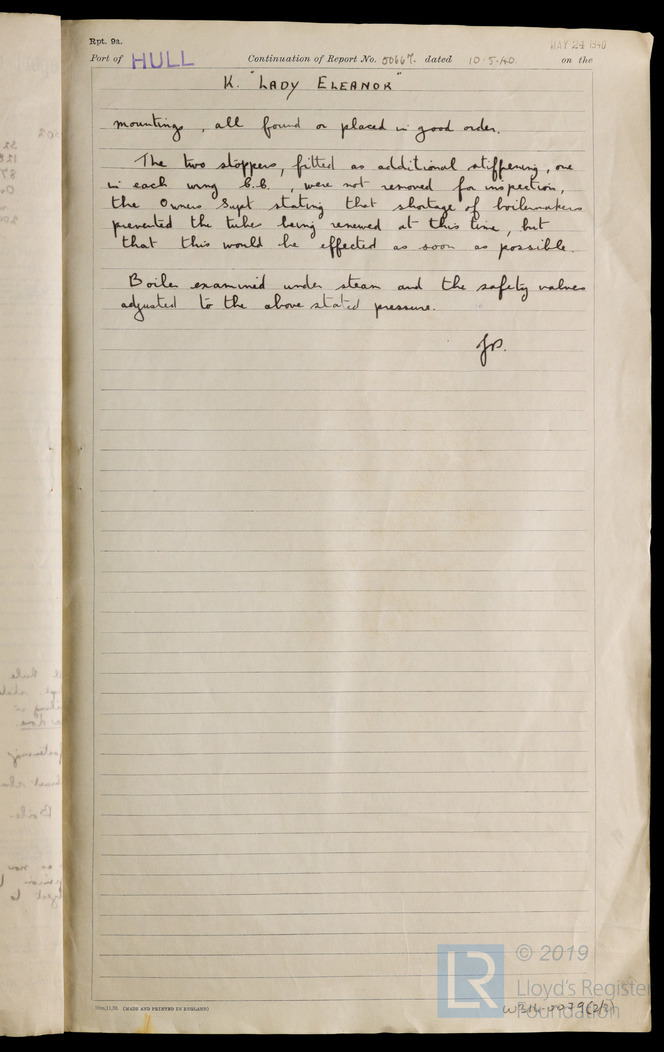 Rpt. 9a.
MAY 24 1940
Port of HULL Continuation of Report No. 50667. dated 10.5.40. on the
K. "LADY ELEANOR"
mountings, all found or placed in good order.
The two stoppers, fitted as additional stiffening, one
in each wing C.C., were not removed for inspection,
the Owners Supt stating that shortage of boilermakers
prevented the tubes being renewed at this time, but
that this would be effected as soon as possible.
Boiler examined under steam and the safety valves
adjusted to the above stated pressure.
(MADE AND PRINTED IN ENGLAND)
LR
© 2019
Lloyd's Register
Foundation